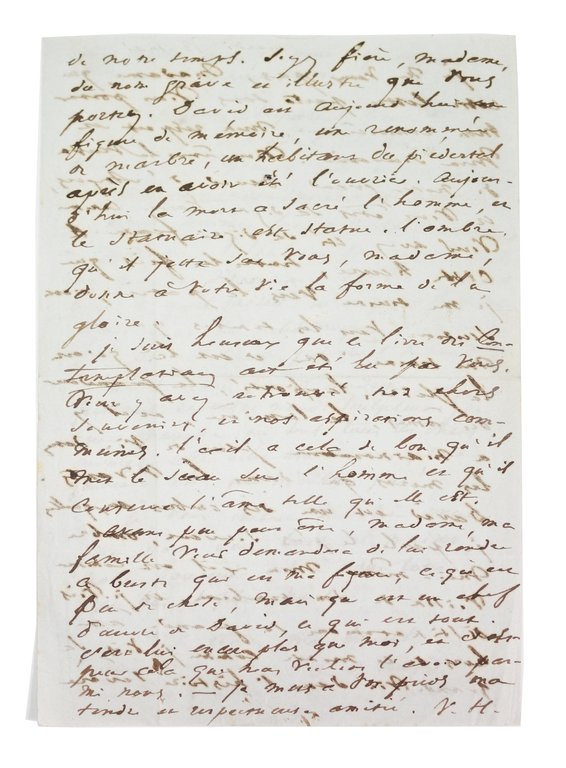 de notre temps. Soyez fière, madame,
du nom grave et illustre que vous
portez. David est aujourd'hui une
figure de mémoire, une renommée
de marbre, un habitant du piédestal
après en avoir été l'ouvrier. Aujour-
d'hui la mort a sacré l'homme, et
le statuaire est statue. l'ombre
qu'il jette sur vous, madame,
donne à votre vie la forme de la
gloire.
je suis heureux que ce livre des Con-
templations ait été lu par vous.
Vous y avez retrouvé nos chers
souvenirs, et nos aspirations com-
munes. l'exil a cela de bon qu'il
met le sceau sur l'homme et qu'il
conserve l'âme telle qu'elle est.
avant peu peut être, madame, ma
famille vous demandera de lui rendre
ce buste qui est ma figure, ce qui est
peu de chose, mais qui est un chef
d'œuvre de David, ce qui est tout.
c'est lui encore plus que moi, et c'est
pour cela que nous voulons l'avoir par-
mi nous. — je mets à vos pieds ma
tendre et respectueuse amitié. V. H.